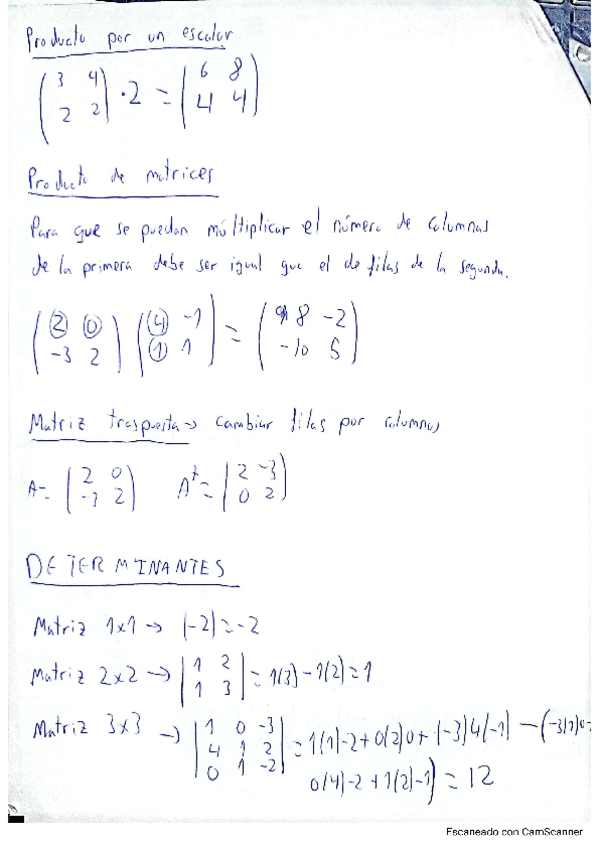 Producto por un escalar
( 3 4 ) · 2 = ( 6 8 )
( 2 2 ) ( 4 4 )
Producto de matrices
Para que se puedan múltiplicar el número de columnas
de la primera debe ser igual que el de filas de la segunda.
( 2 0 ) ( 4 -1 ) = ( 8 -2 )
( -3 2 ) ( 1 1 ) ( -10 5 )
Matriz traspuesta → cambiar filas por columnas
A = ( 2 0 ) Aᵗ = ( 2 -3 )
( -3 2 ) ( 0 2 )
DETERMINANTES
Matriz 1x1 → |-2| = -2
Matriz 2x2 → | 1 2 | = 1(3) - 1(2) = 1
| 1 3 |
Matriz 3x3 → | 1 0 -3 | = 1(1)-2 + 0(2)0 + (-3)4(-1) - (-3(1)0-
| 4 1 2 |
| 0 1 -2 | 0(4)-2 + 1(2)-1) = 12
Escaneado con CamScanner